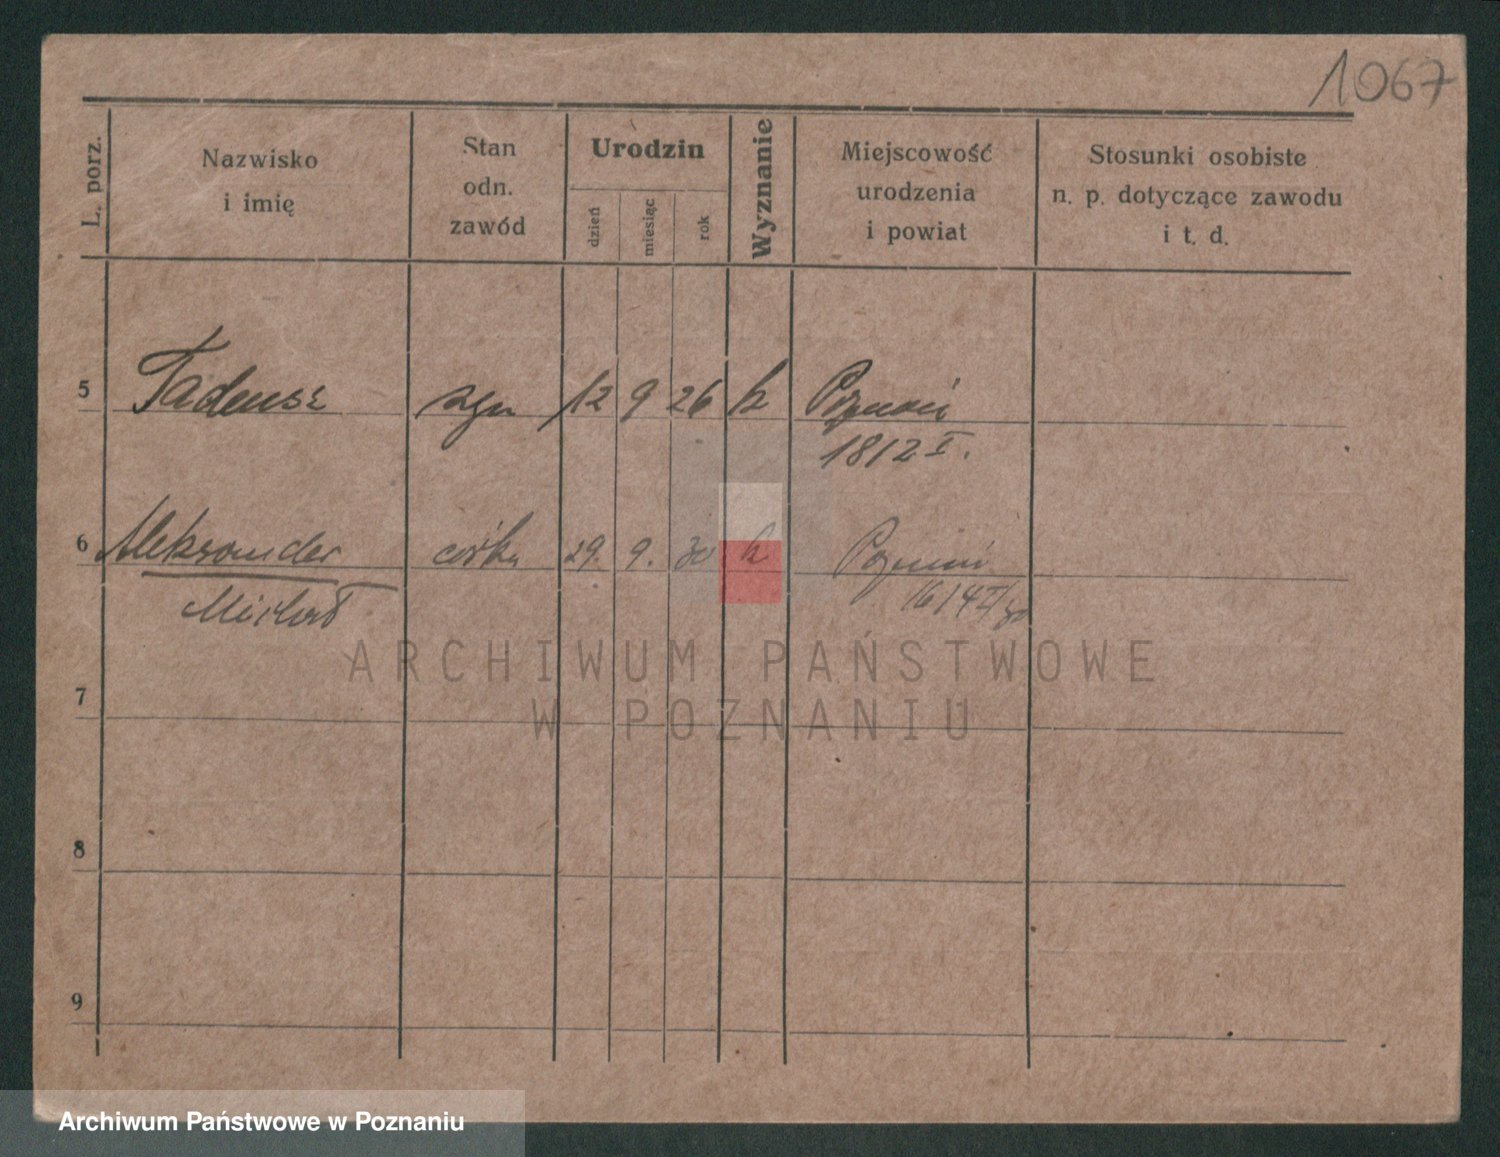 1067
L. porz.
Nazwisko
i imię
Stan
odn.
zawód
Urodzin
dzień
miesiąc
rok
Wyznanie
Miejscowość
urodzenia
i powiat
Stosunki osobiste
n. p. dotyczące zawodu
i t. d.
5 Tadeusz syn 12 9 26 k Poznań
1812 I.
6 Aleksander córka 29. 9. 30 k Poznań
Michał
ARCHIWUM PAŃSTWOWE
W POZNANIU
7
8
9
Archiwum Państwowe w Poznaniu